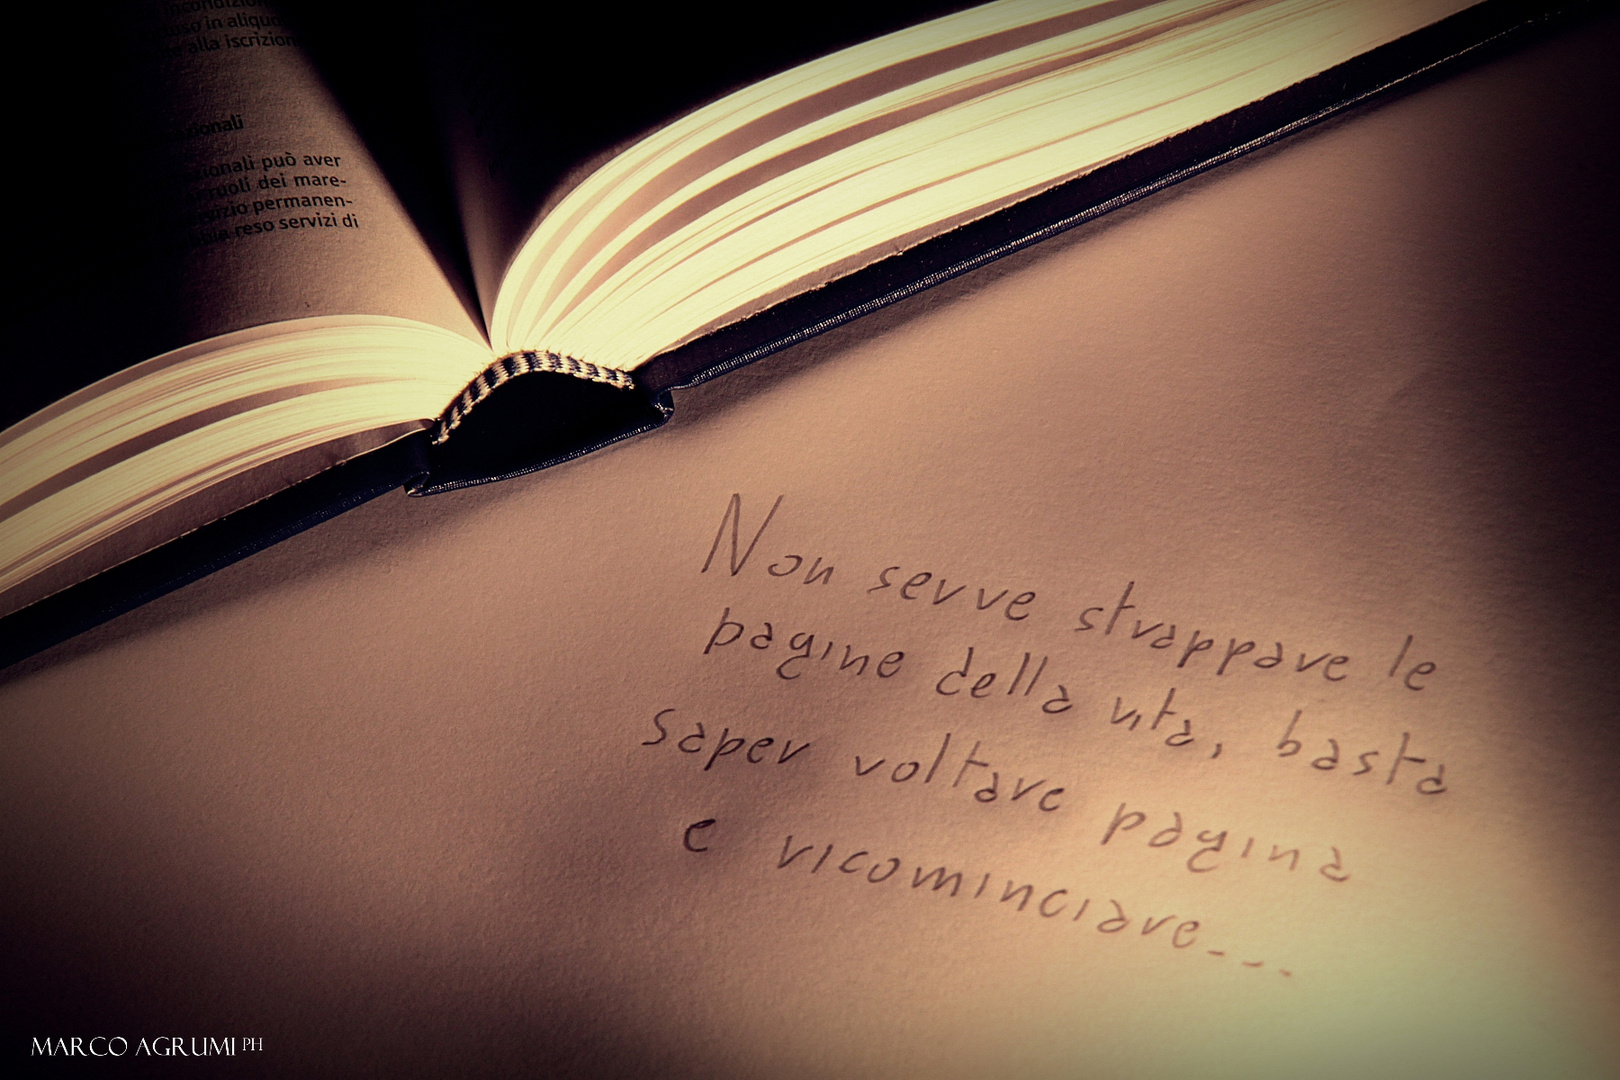 incondizio
uso in aliquo
alla iscrizion
ionali
zionali può aver
ruoli dei mare-
permanen-
reso servizi di
Non serve strappare le
pagine della vita, basta
saper voltare pagina
e ricominciare...
MARCO AGRUMI PH